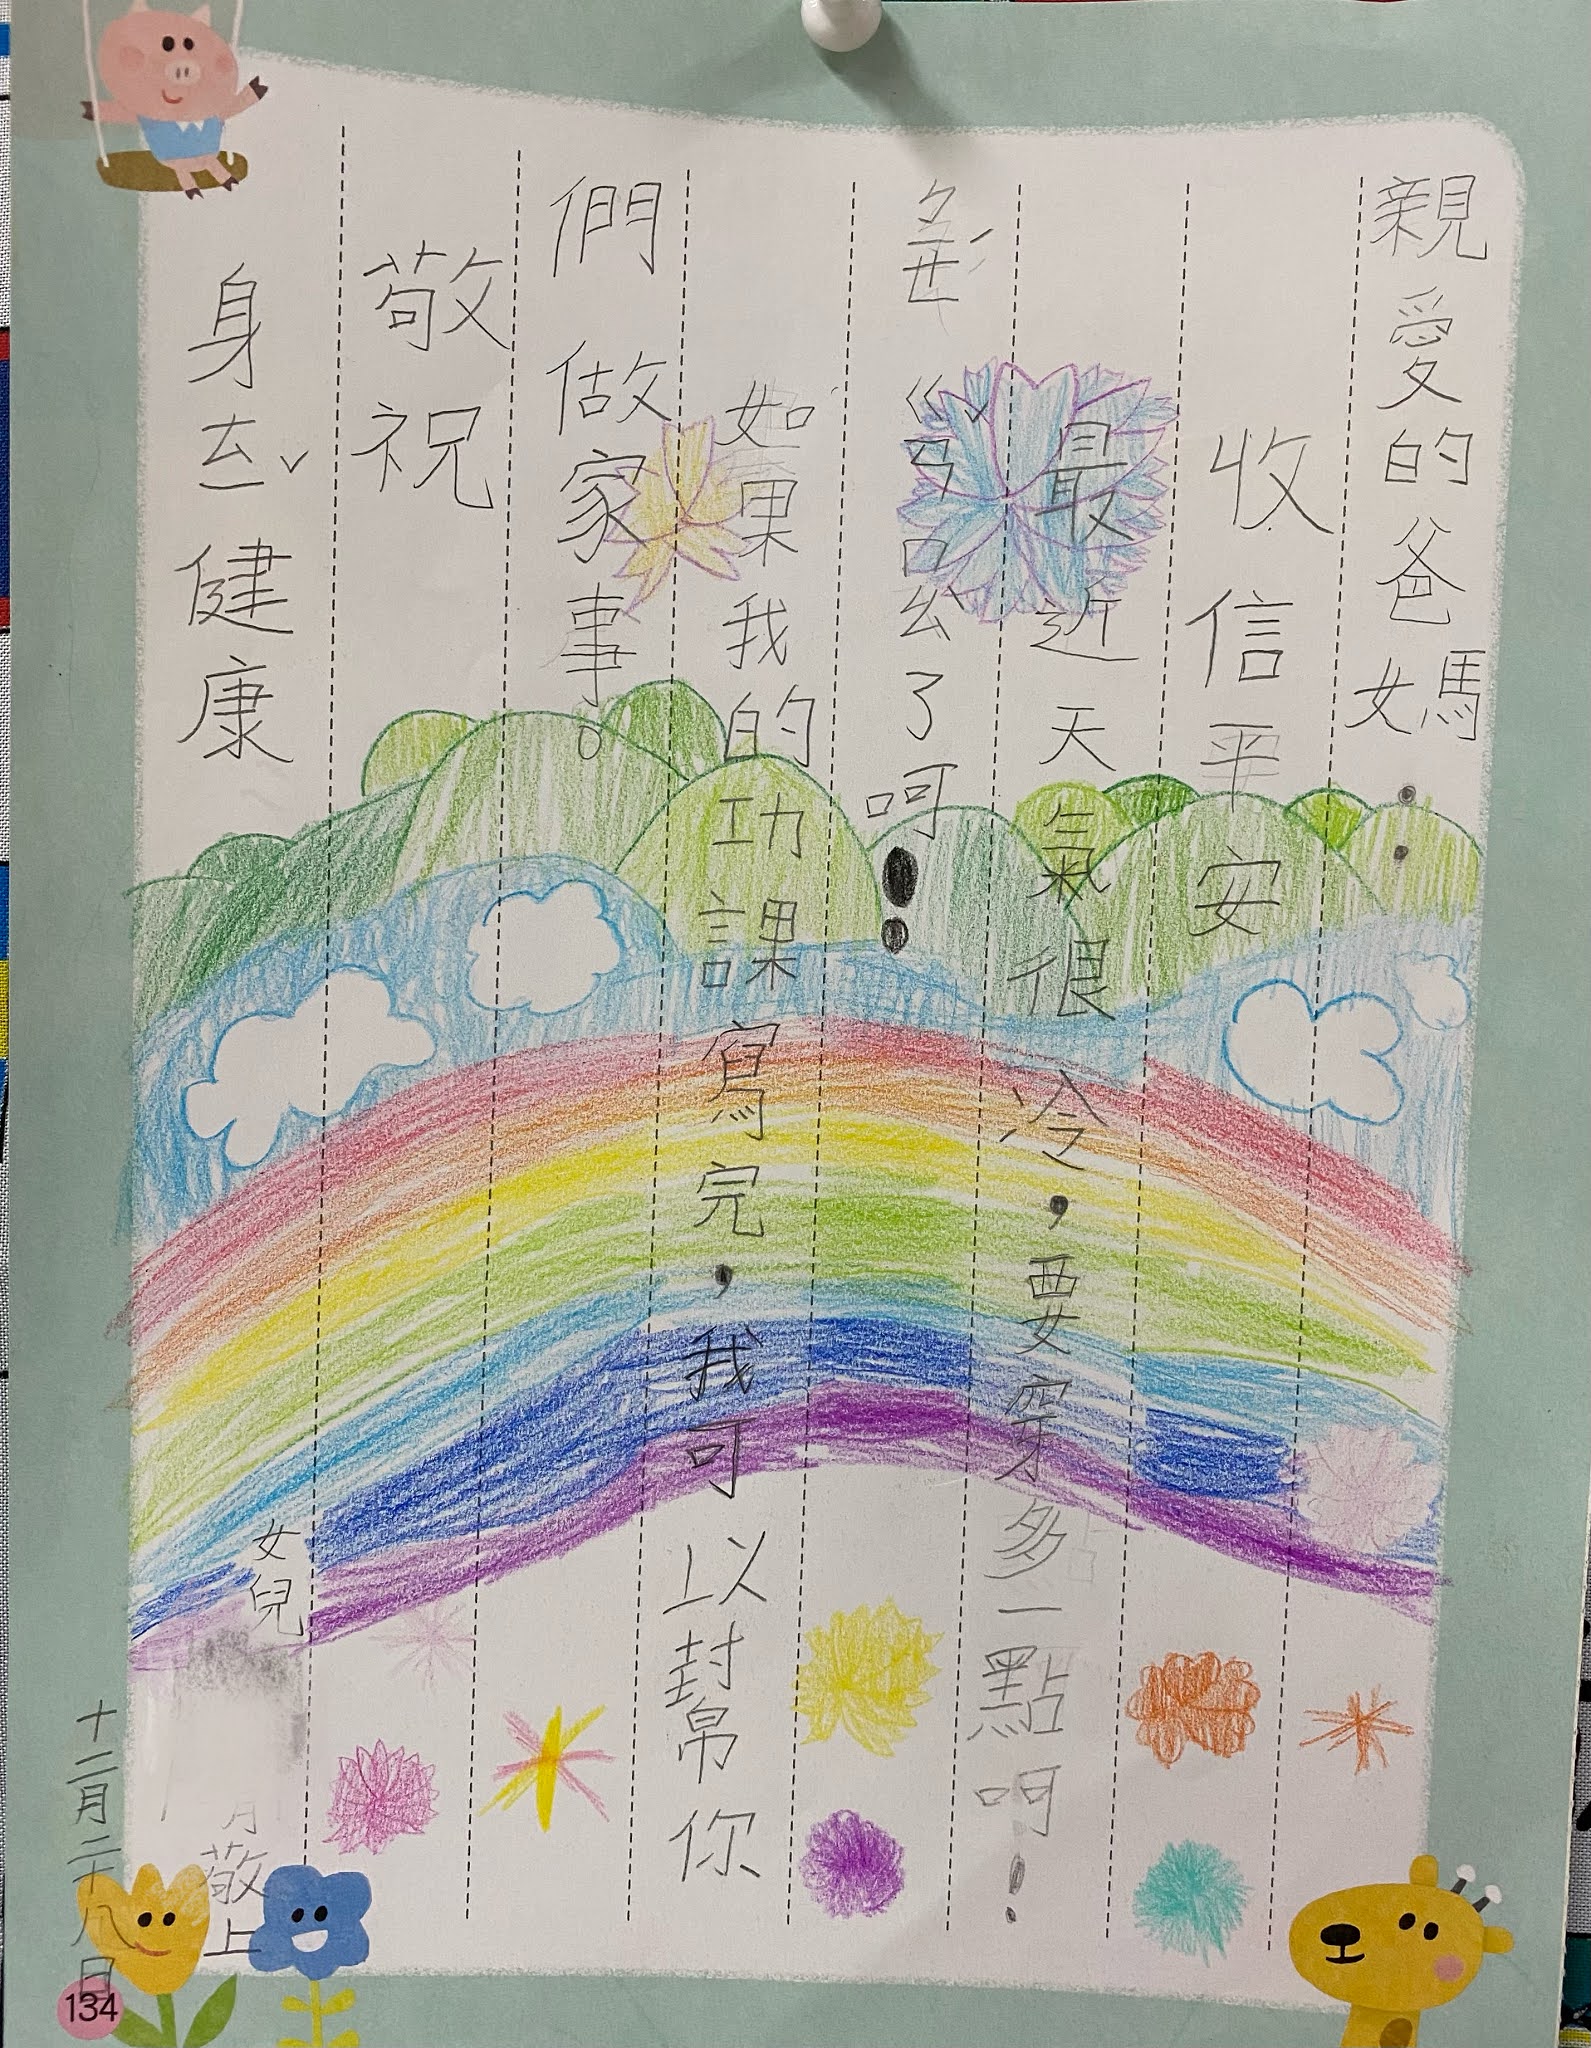 親愛的爸媽：
收信平安
最近天氣很冷，要穿多一點呵！
ㄅㄧㄝˊㄍㄢˇㄇㄠ了呵！
如果我的功課寫完，我可以幫你
們做家事。
敬祝
身ㄊㄧˇ健康
女兒
敬上
十二月二十八日
134